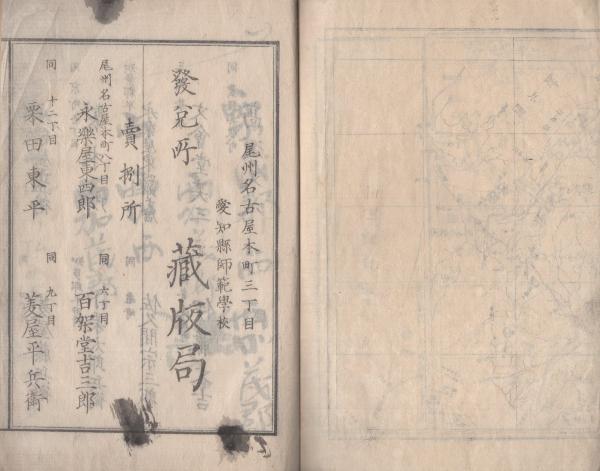 尾州名古屋本町三丁目
愛知縣師範學校
發兌所
藏版局
賣捌所
尾州名古屋本町八丁目
永樂屋東四郎
同 六丁目
百架堂吉三郎
同 十二丁目
栗田東平
同 九丁目
菱屋平兵衛